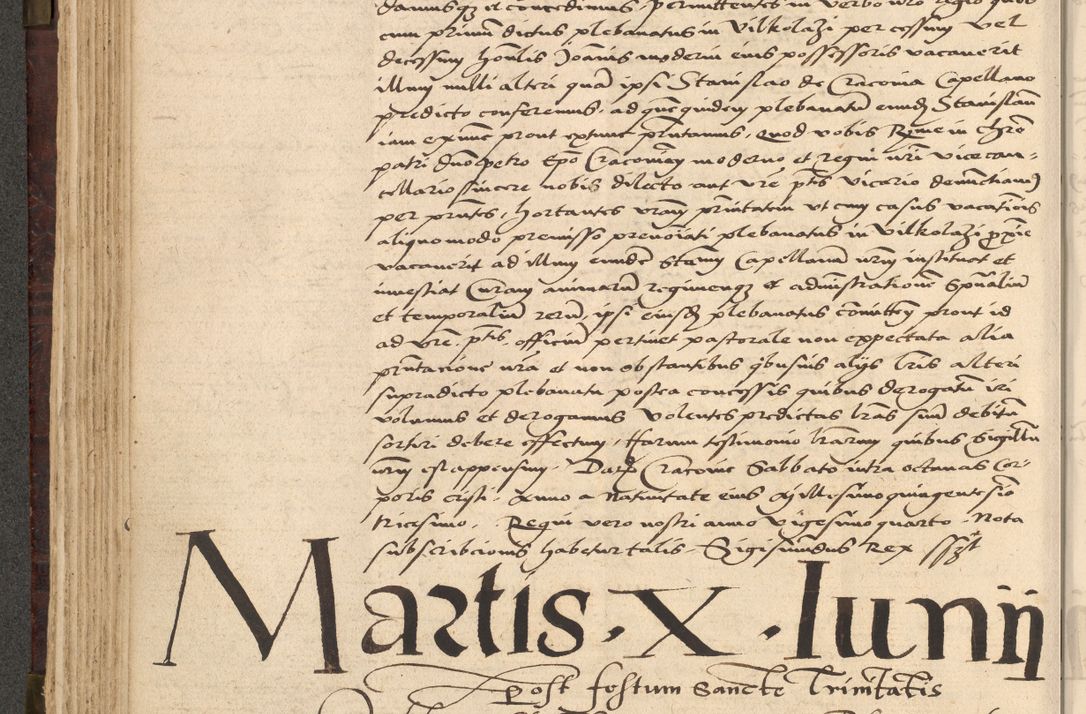 damusqz et concedimus permittentes in verbo nro regio quod
cum primum dictus plebanatus in Vilkolazi per cessum vel
decessum honlis Joannis moderni eius possessoris vacauerit
illum nulli alteri quam ipsi Stanislao de Cracovia Capellano
predicto conferemus, ad quem quidem plebanatum eundem Stanislaum
iam ex nunc prout ex tunc pntamus, quod vobis Rme in chro
patri dno petro Epo Cracovien moderno et regni nri vicecan-
cellario sincere nobis dilecto aut vre ptis vicario denunctiamus
per pntes, hortantes vram pnitatem vt cum casus vacationis
aliquo modo premisso prenoiati plebanatus in Vilkolazi pxie
vacauerit ad illum eundem Stanum Capellanum nrum instituat et
inuestiat Curam animarum regimenqz et administrationem spualium
et temporalium rerum, ipsi eiusdem plebanatus comittem prout id
ad vre ptis officium pertinet pastorale non expectata alia
pntacione nra et non obstantibus qbusuis alijs lris alteri
supradicto plebanatu postea concessis quibus derogatum iri
volumus et derogamus Volentes predictas lras suum debitum
sortiri debere effectum, Harum testimonio lrarum quibus Sigillum
nrum est appensum, Datum Cracovie Sabbato intra octauas Cor-
poris cristi, Anno a Natiuitate eius Millesimo quingentesimo
tricesimo, Regni vero nostri anno vigesimo quarto, Nota
subscribcionis habetur talis, Sigismundus Rex sszt
Martis · X · Iunij
post festum Sancte Trinitatis